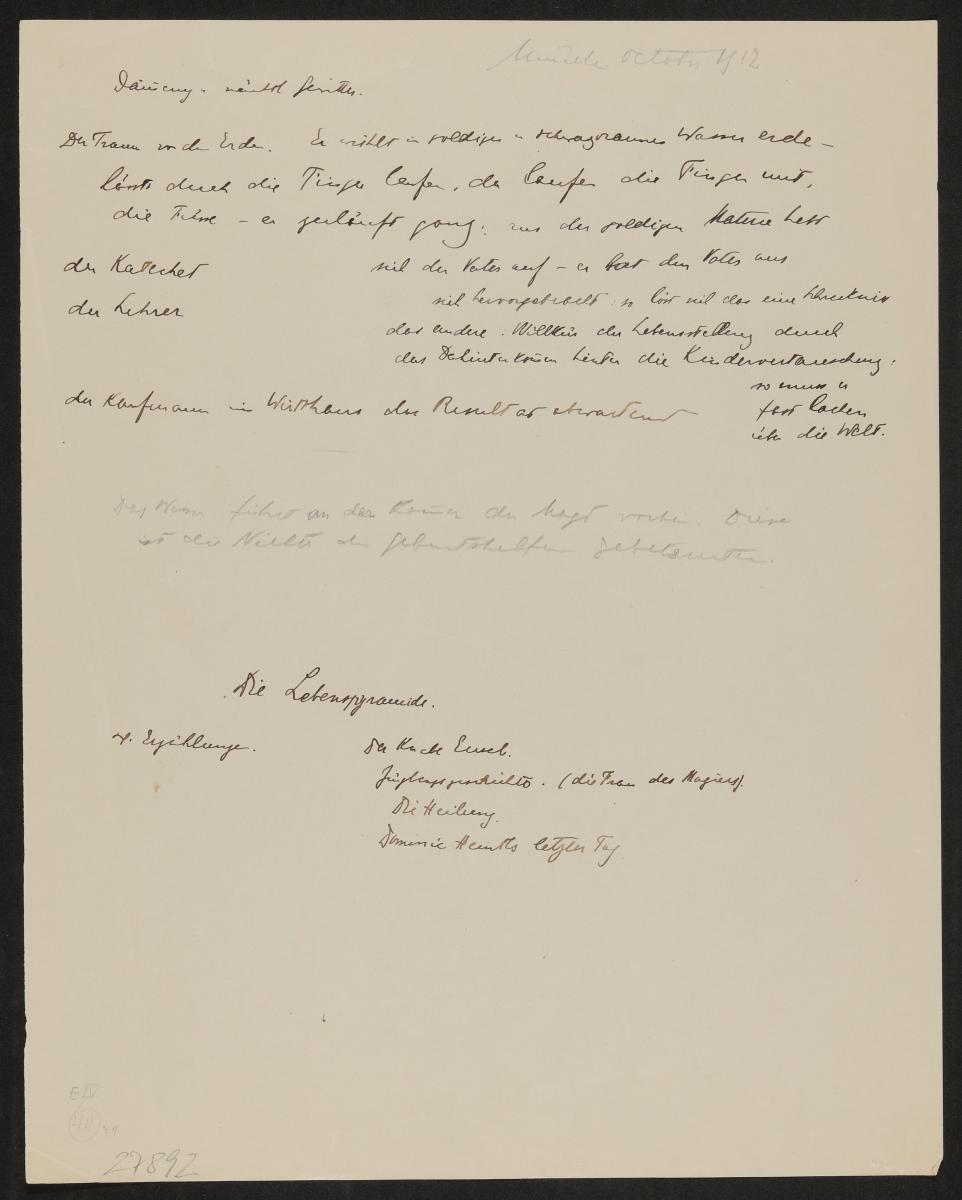 October 1912
Dämmerung
Der Traum von der Erde. Er wühlt in goldigen u schwarzbraunes Wasser erde –
lässts durch die Finger laufen, da laufen die Finger mit,
die Füsse – er zerläuft ganz; aus der goldigen Materie hebt
der Katechet sich der Vater auf – er hat den Vater aus
der Lehrer sich hervorgebracht: so löst sich das eine Schrecknis
das andere. Willkür der Lebensstellung durch
das Dahinterkommen hinter die Kindervertauschung:
so muss er
der Kaufmann im Wirtshaus das Resultat abwartend
fast lachen
über die Welt.
Das Wasser führt an der Kammer der Magd vorbei. Diese
ist die Nichte der Geburtshelferin
Die Lebenspyramide.
4. Erzählungen.
Der Knabe Euseb.
Jünglingsgeschichte. (die Frau des Magiers).
Die Heilung.
Dominic Heintls letzter Tag
E IV
49
27892